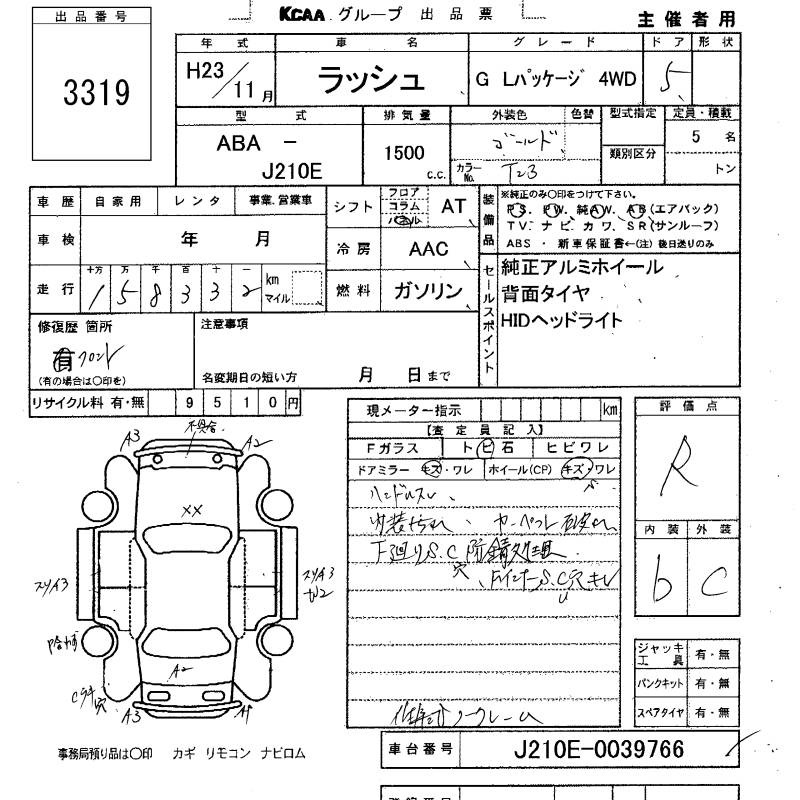 KCAA グループ 出品票
主催者用
出品番号
3319
年式 車名 グレード ドア 形状
H23/11月 ラッシュ G Lパッケージ 4WD 5
型式 排気量 外装色 色替 型式指定 定員・積載
ABA - J210E 1500 c.c. ゴールド 5 名
類別区分
カラーNo. T23 トン
車歴 自家用 レンタ 事業、営業車
シフト フロア コラム パネル AT
装備品 ※純正のみ○印をつけて下さい。
P.S. P.W. 純A.W. A.B(エアバック)
T.V. ナビ. カワ. S.R(サンルーフ)
ABS ・ 新車保証書←(注) 後日送りのみ
車検 年 月
冷房 AAC
走行 十万 万 千 百 十 一
158332 km マイル
燃料 ガソリン
セールスポイント
純正アルミホイール
背面タイヤ
HIDヘッドライト
修復歴 箇所
有 フロント
(有の場合は○印を)
注意事項
名変期日の短い方 月 日まで
リサイクル料 有・無 9510円
現メーター指示 km
【査定員記入】
Fガラス トビ石 ヒビワレ
ドアミラー キズ・ワレ ホイール(CP) キズ・ワレ
ハンドルスレ、
内装汚れ、カーペット
下廻りS.C 防錆処理
穴
S.C穴キレ
ノークレーム
評価点
R
内装 外装
b C
ジャッキ工具 有・無
パンクキット 有・無
スペアタイヤ 有・無
不具合
A3 A2
XX
スリA3 スリA3
A2
穴
A3 A1
事務局預り品は○印 カギ リモコン ナビロム
車台番号 J210E-0039766